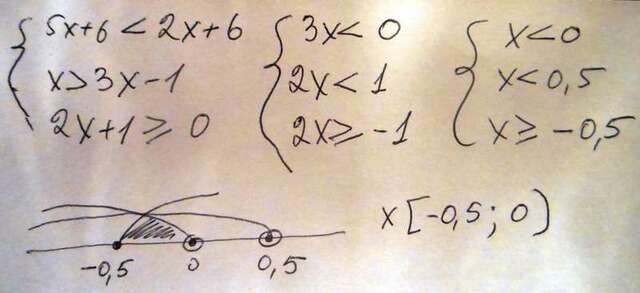 5x+6 < 2x+6
x>3x-1
2x+1 ≥ 0
3x < 0
2x < 1
2x ≥ -1
x < 0
x < 0,5
x ≥ -0,5
-0,5 0 0,5
x [-0,5 ; 0)